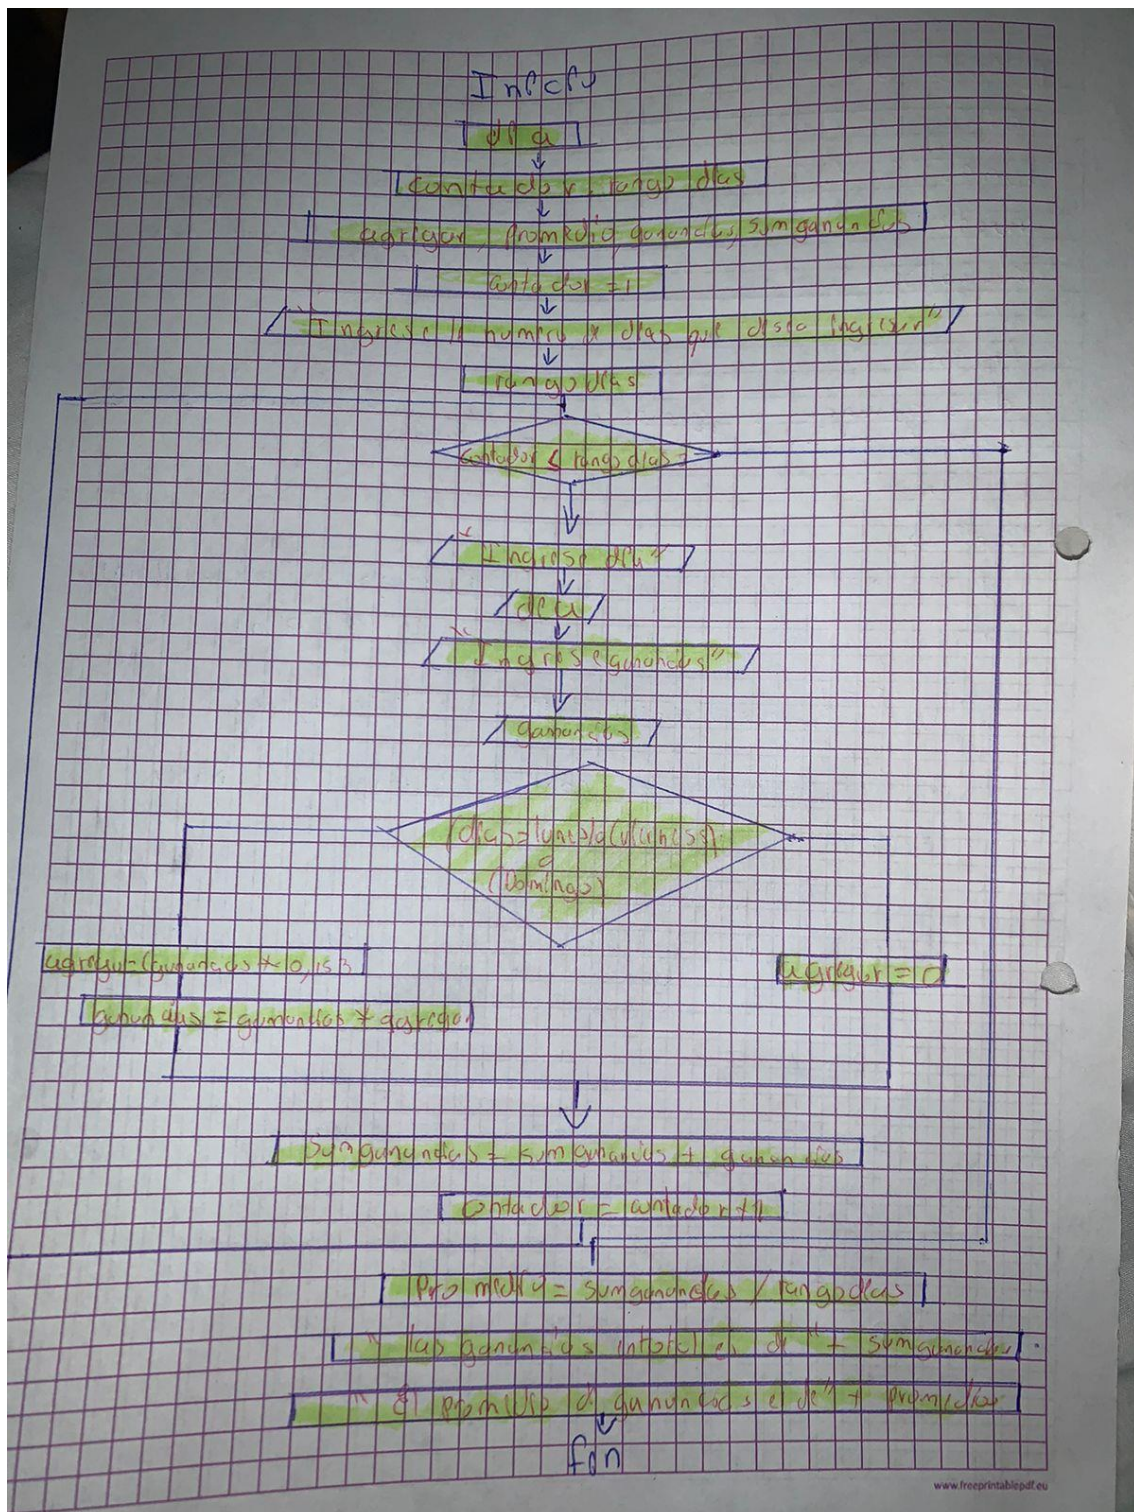 Inicio
día
contador, rango días
agregar, promedio, ganancias, sumganancias
contador = 1
"Ingrese el numero de días que desea ingresar"
rango días
contador ≤ rango días
"Ingrese día"
día
"Ingrese ganancias"
ganancias
(días=lunes) o (viernes)
o
(Domingo)
agregar=(ganancias * 0,15)
agregar = 0
ganancias = ganancias + agregar
sumganancias = sumganancias + ganancias
contador = contador + 1
Promedio = sumganancias / rango días
"las ganancias es de" + sumganancias
"El promedio d ganancias e de" + promedio
fin
www.freeprintablepdf.eu